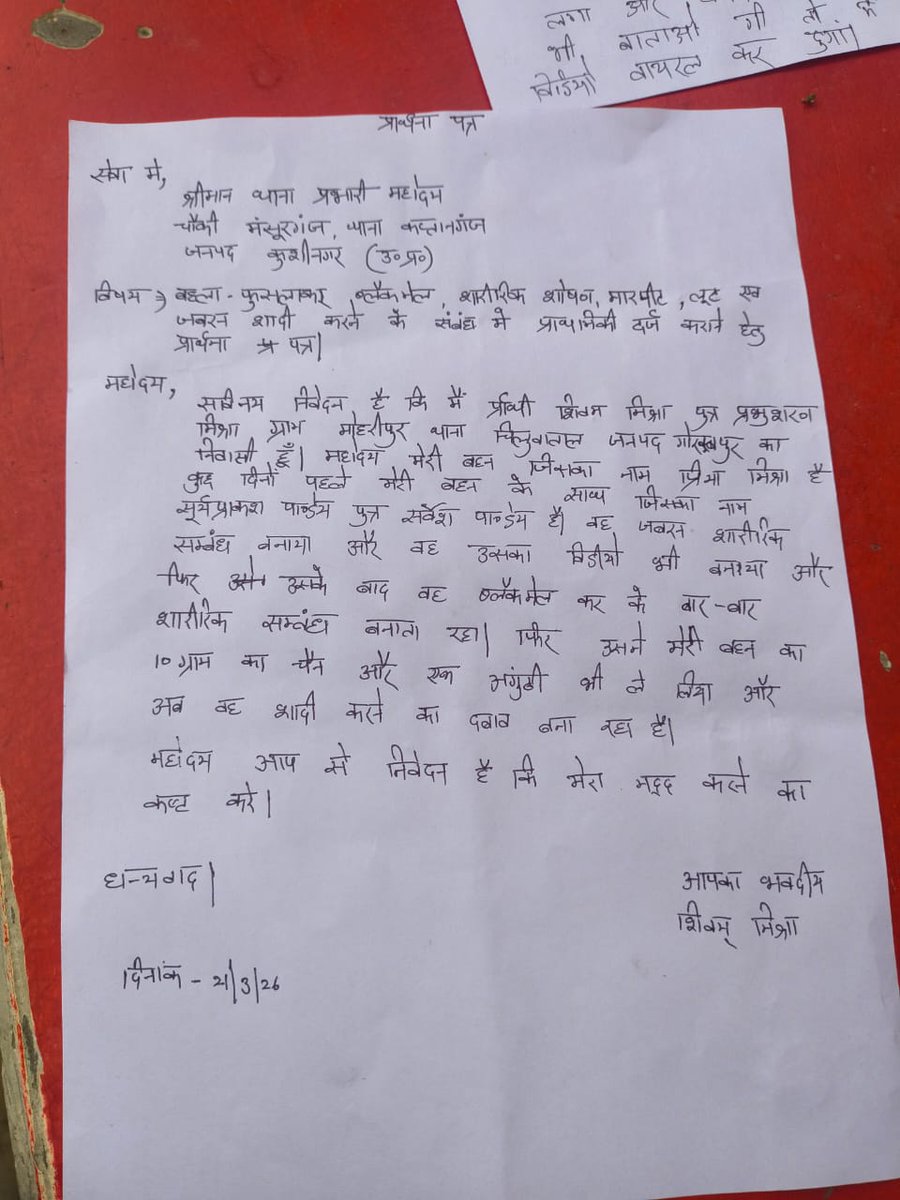 लगा और
भी बाताओ गी तो मै
विडियो वायरल कर दुगां।
प्रार्थना पत्र
सेवा मे,
श्रीमान थाना प्रभारी महोदय
चौकी मंसूरगंज, थाना कप्तानगंज
जनपद कुशीनगर (उ०प्र०)
विषय → बहला-फुसलाकर, ब्लैकमेल, शारीरिक शोषण, मारपीट, लूट एव
जबरन शादी करने के संबंध मे प्राथमिकी दर्ज कराने हेतु
प्रार्थना पत्र।
महोदय,
सविनय निवेदन है कि मैं प्रार्थी शिवम मिश्रा पुत्र प्रभुशरण
मिश्रा ग्राम मोहरीपुर थाना चिलुवाताल जनपद गोरखपुर का
निवासी हूँ। महोदय मेरी बहन जिसका नाम प्रिया मिश्रा है
कुछ दिनों पहले मेरी बहन के साथ जिसका नाम
सूर्यप्रकाश पाण्डेय पुत्र सर्वेश पाण्डेय है। वह जबरन शारीरिक
सम्बंध बनाया और वह उसका विडीयो भी बनाया और
फिर उसके बाद वह ब्लैकमेल कर के बार-बार
शारीरिक सम्बंध बनाता रहा। फिर उसने मेरी बहन का
10 ग्राम का चैन और एक अगुंठी भी ले लिया और
अब वह शादी करने का दबाव बना रहा है।
महोदय आप से निवेदन है कि मेरा मद्द करने का
कष्ट करे।
धन्यवाद।
आपका भवदीय
शिवम् मिश्रा
दिनांक - 21/3/26